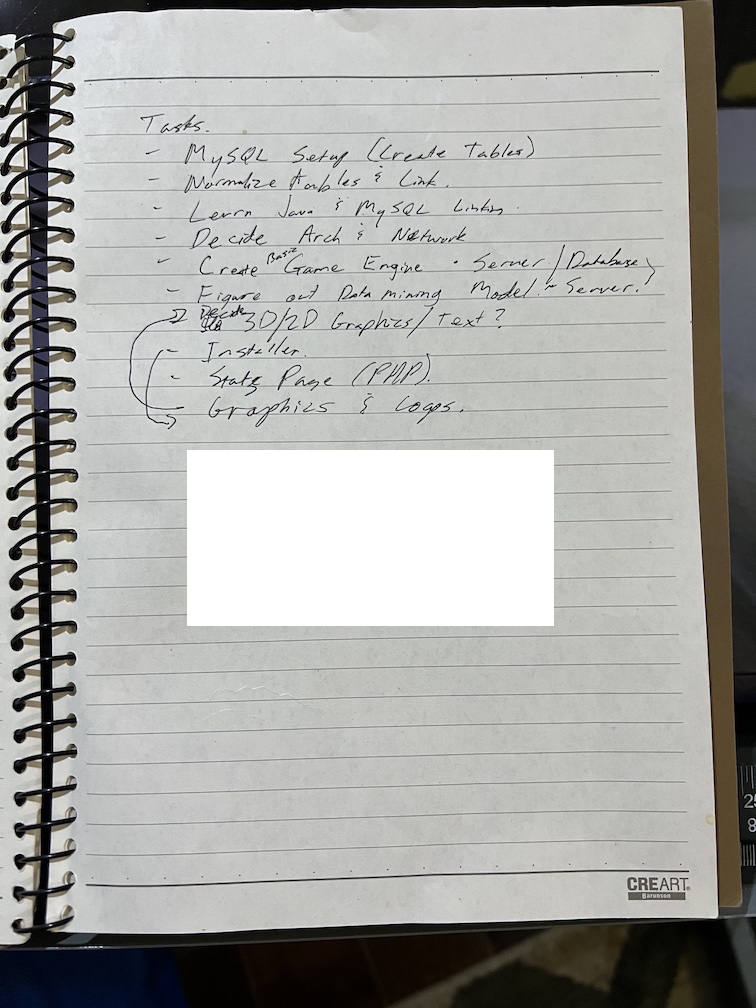 Tasks.
- MySQL Setup (Create Tables)
- Normalize tables & Link.
- Learn Java & MySQL Linking.
- Decide Arch & Network
- Create Basic Game Engine · Server/Database
- Figure out Data mining Model. ~ Server.
Decide 3D/2D Graphics/Text?
- Installer.
- Stats Page (PHP).
- Graphics & Logos.
CREART
Barunson
25
8